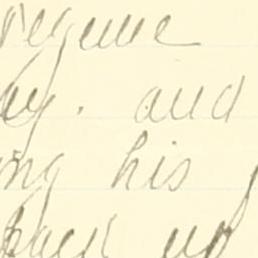 regime
ay. and
ing his
back up